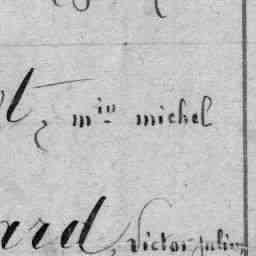 t, min michel
ard, victor julien